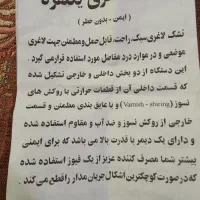 (ایمن - بدون خطر)
تشک لاغری سبک، راحت، قابل حمل و مطمئن جهت لاغری
موضعی و در موارد درد مفاصل مورد استفاده قرار می گیرد.
این دستگاه از دو بخش داخلی و خارجی تشکیل شده
که قسمت داخلی آن از قطعات حرارتی با روکش های
نسوز (Varnish - shiring) و با عایق بندی مطمئن و قسمت
خارجی از روکش نسوز و ضد آب و مقاوم استفاده شده
و دارای یک دیمر با قدرت بالا می باشد که برای ایمنی
بیشتر شما مصرف کننده عزیز از یک فیوز استفاده شده
که در صورت کوچکترین اشکال جریان مدار را قطع می کند.